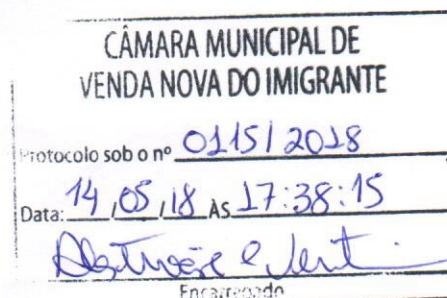 CÂMARA MUNICIPAL DE
VENDA NOVA DO IMIGRANTE
Protocolo sob o nº 0115/2018
Data: 14/05/18 ÀS 17:38:15
Encarregado